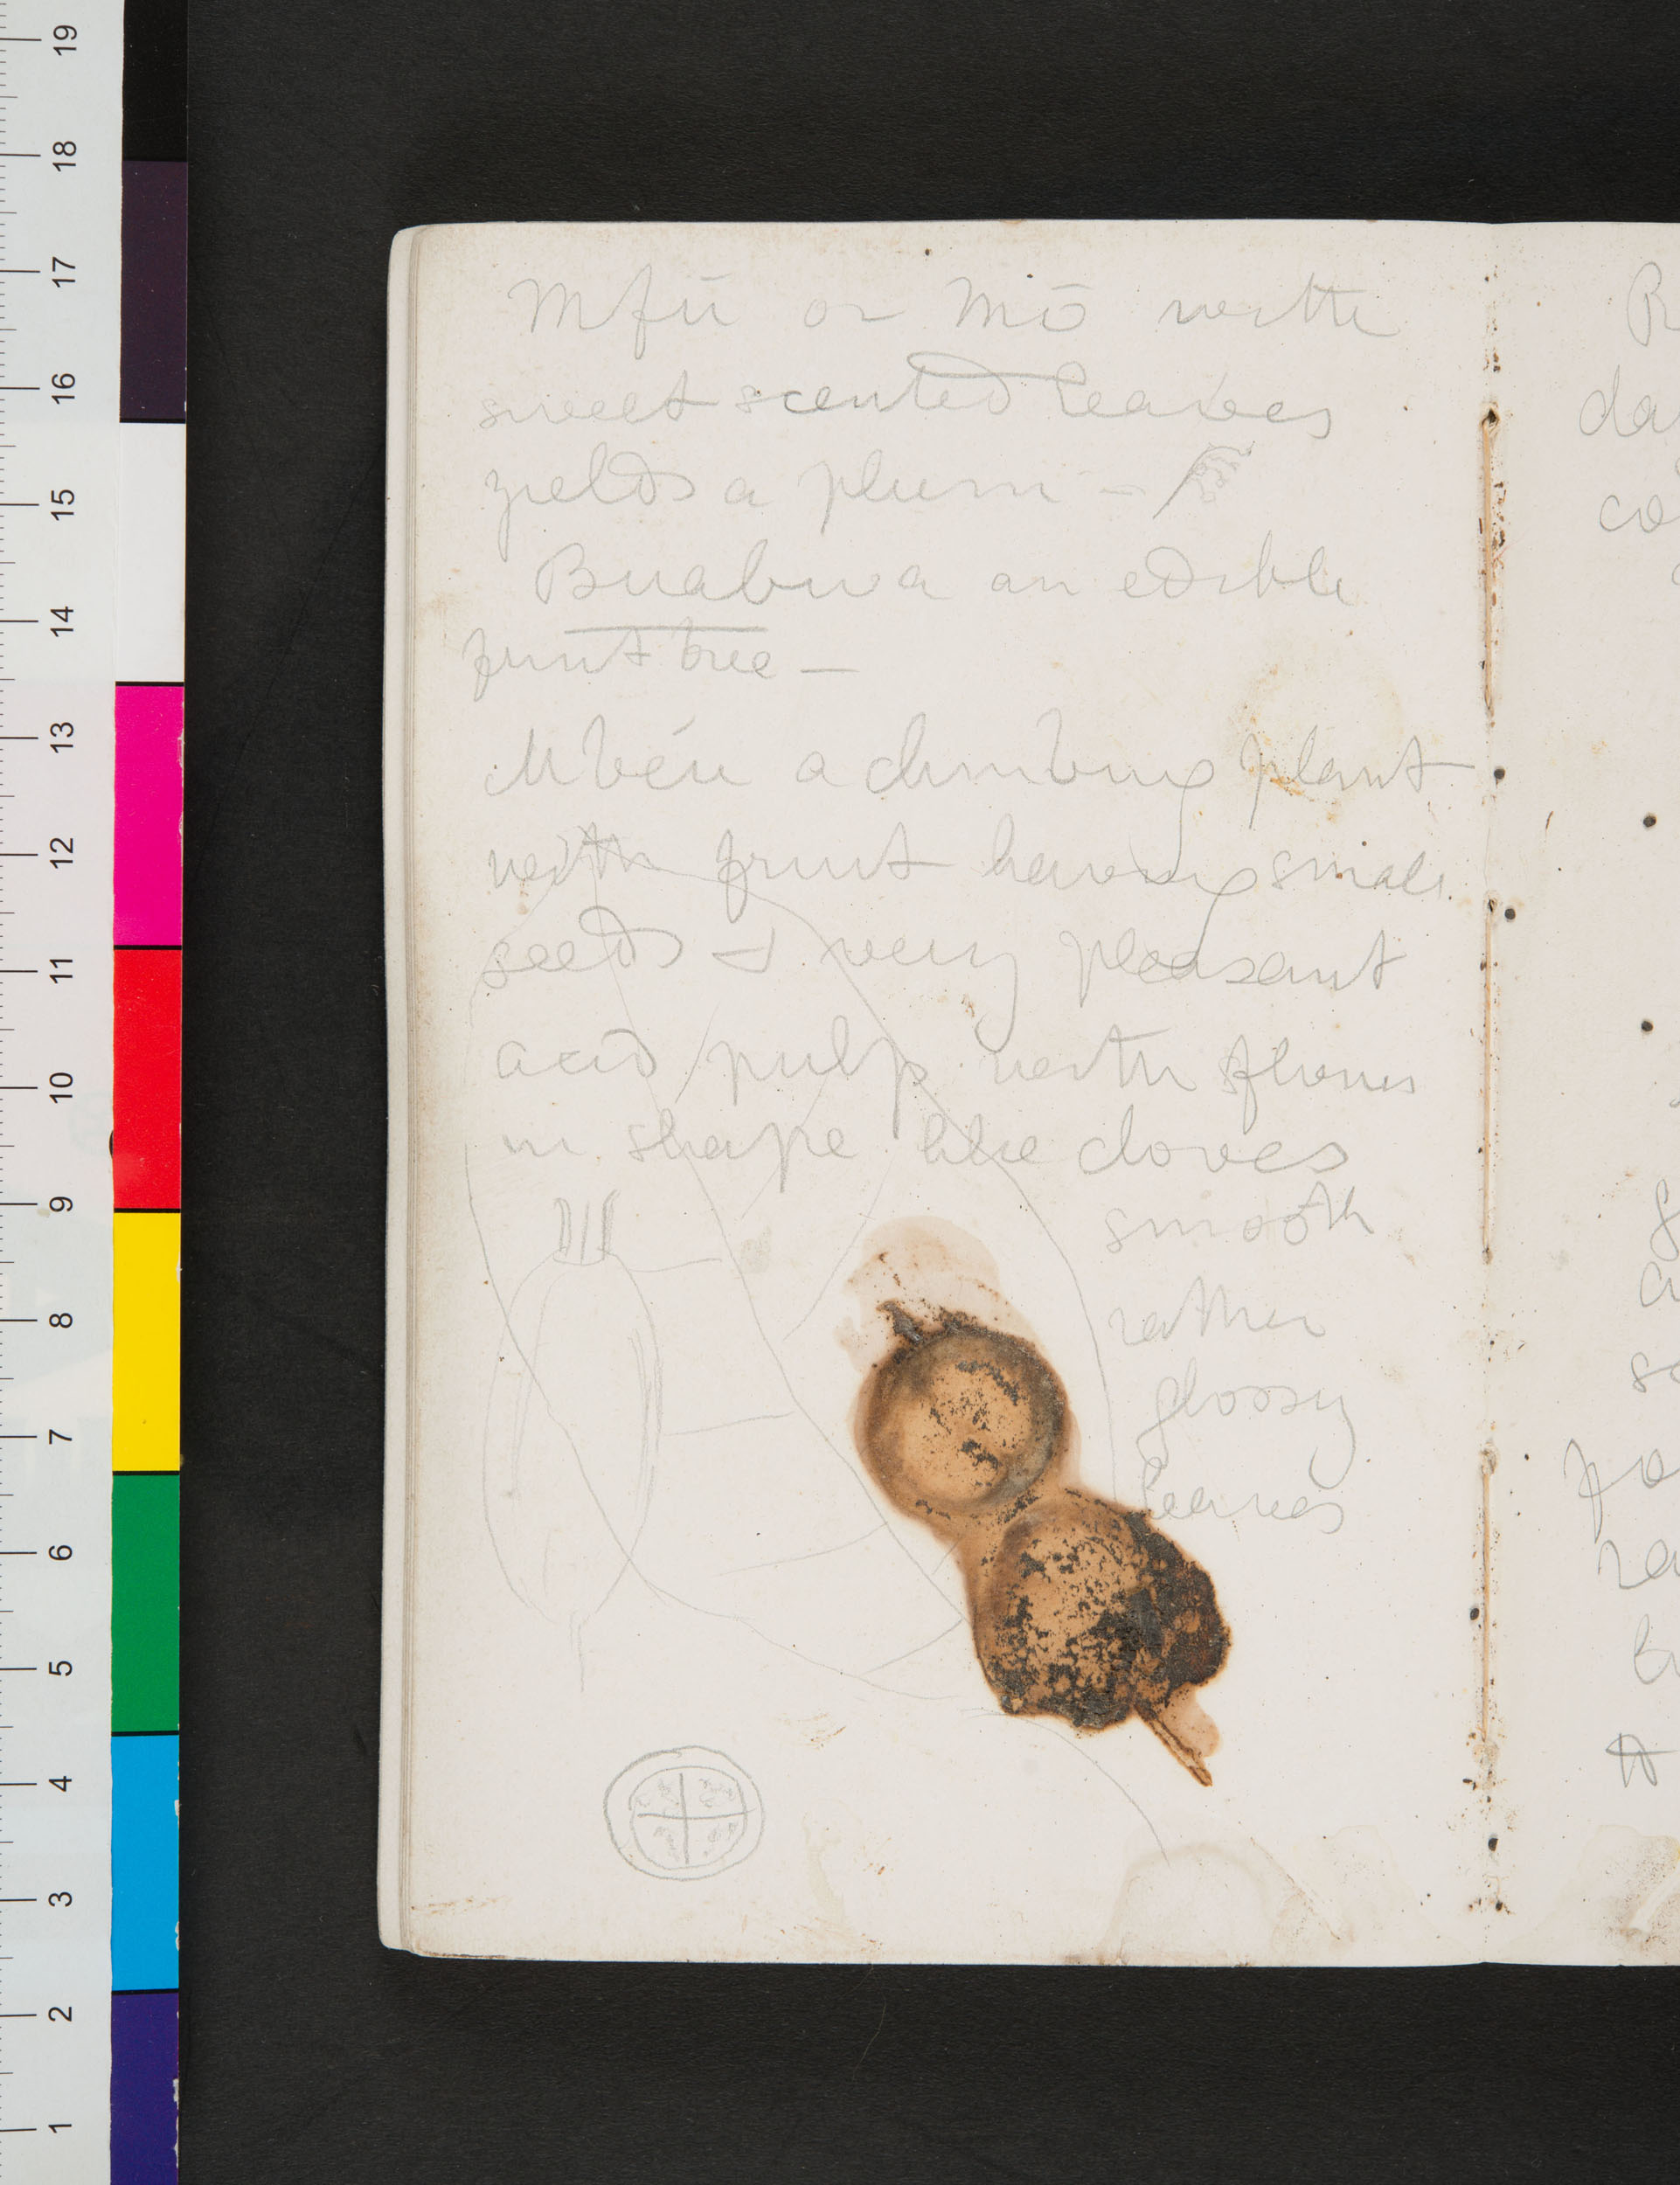 Mfū or Mō with
sweet scented leaves
yields a plum —
Buabwa an edible
fruit tree —
Mbéu a climbing plant
with fruit having small
seeds & very pleasant
acid pulp with flowers
in shape like cloves
smooth
rather
glossy
leaves
da
co
19
18
17
16
15
14
13
12
11
10
9
8
7
6
5
4
3
2
1